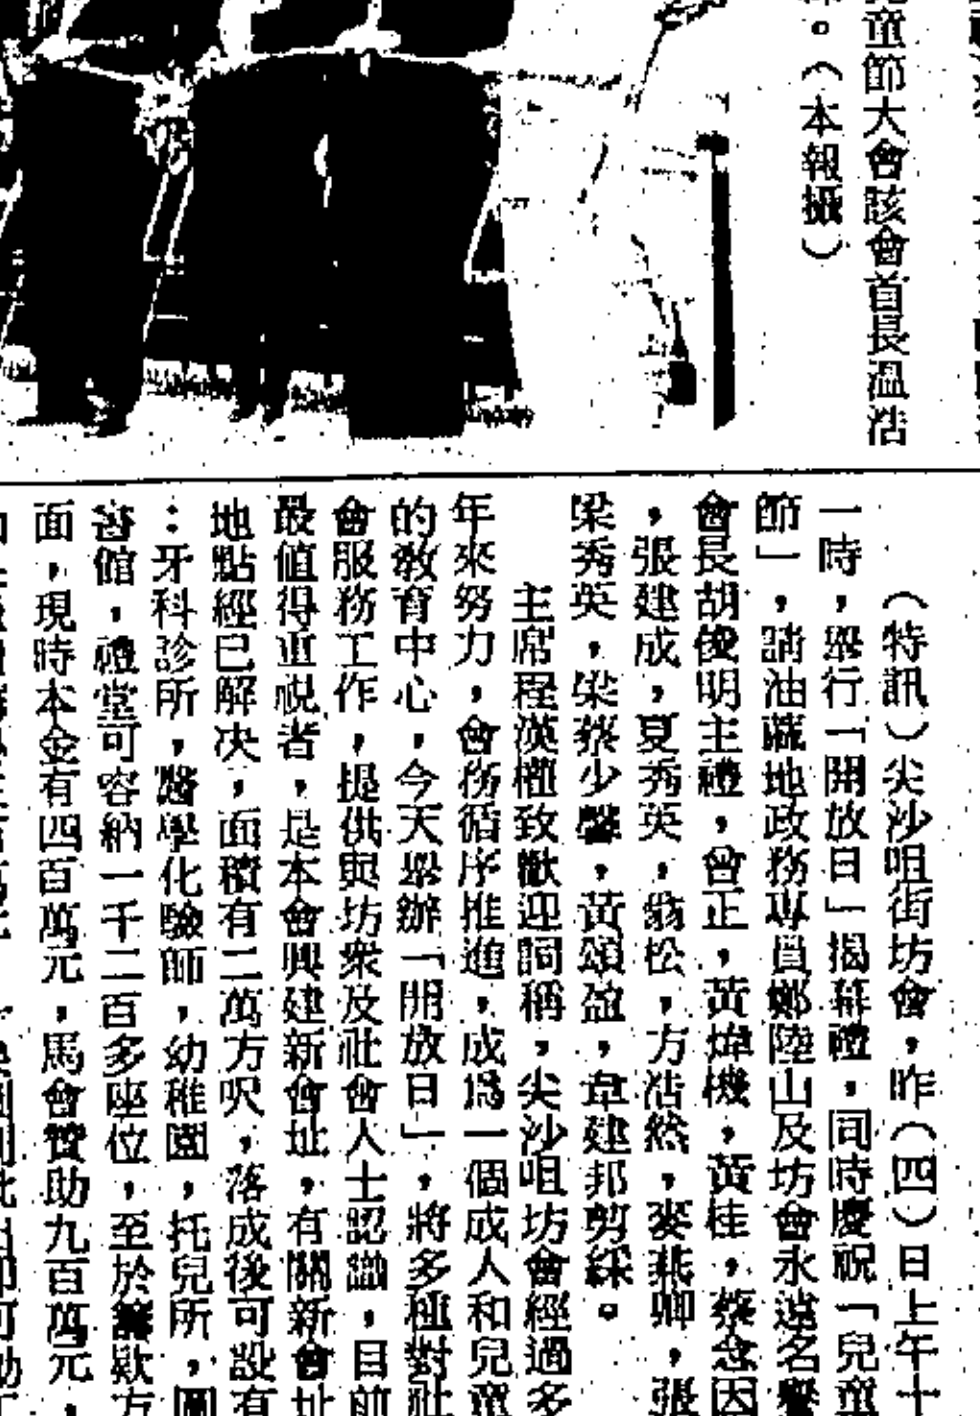 童節大會該會首長溫浩
。（本報攝）
（特訊）尖沙咀街坊會，昨（四）日上午十
一時，舉行「開放日」揭幕禮，同時慶祝「兒童
節」，請油蔴地政務專員鄭陸山及坊會永遠名譽
會長胡俊明主禮，曾正，黃煒機，黃桂，蔡念因
，張建成，夏秀英，翁松，方浩然，麥燕卿，張
梁秀英，梁蔡少馨，黃頌盈，韋建邦剪綵。
主席程漢權致歡迎詞稱，尖沙咀坊會經過多
年來努力，會務循序推進，成爲一個成人和兒童
的敎育中心，今天舉辦「開放日」，將多種對社
會服務工作，提供與坊衆及社會人士認識，目前
最值得重視者，是本會興建新會址，有關新會址
地點經已解决，面積有二萬方呎，落成後可設有
：牙科診所，醫學化驗師，幼稚園，托兒所，圖
書館，禮堂可容納一千二百多座位，至於籌欵方
面，現時本金有四百萬元，馬會贊助九百萬元，